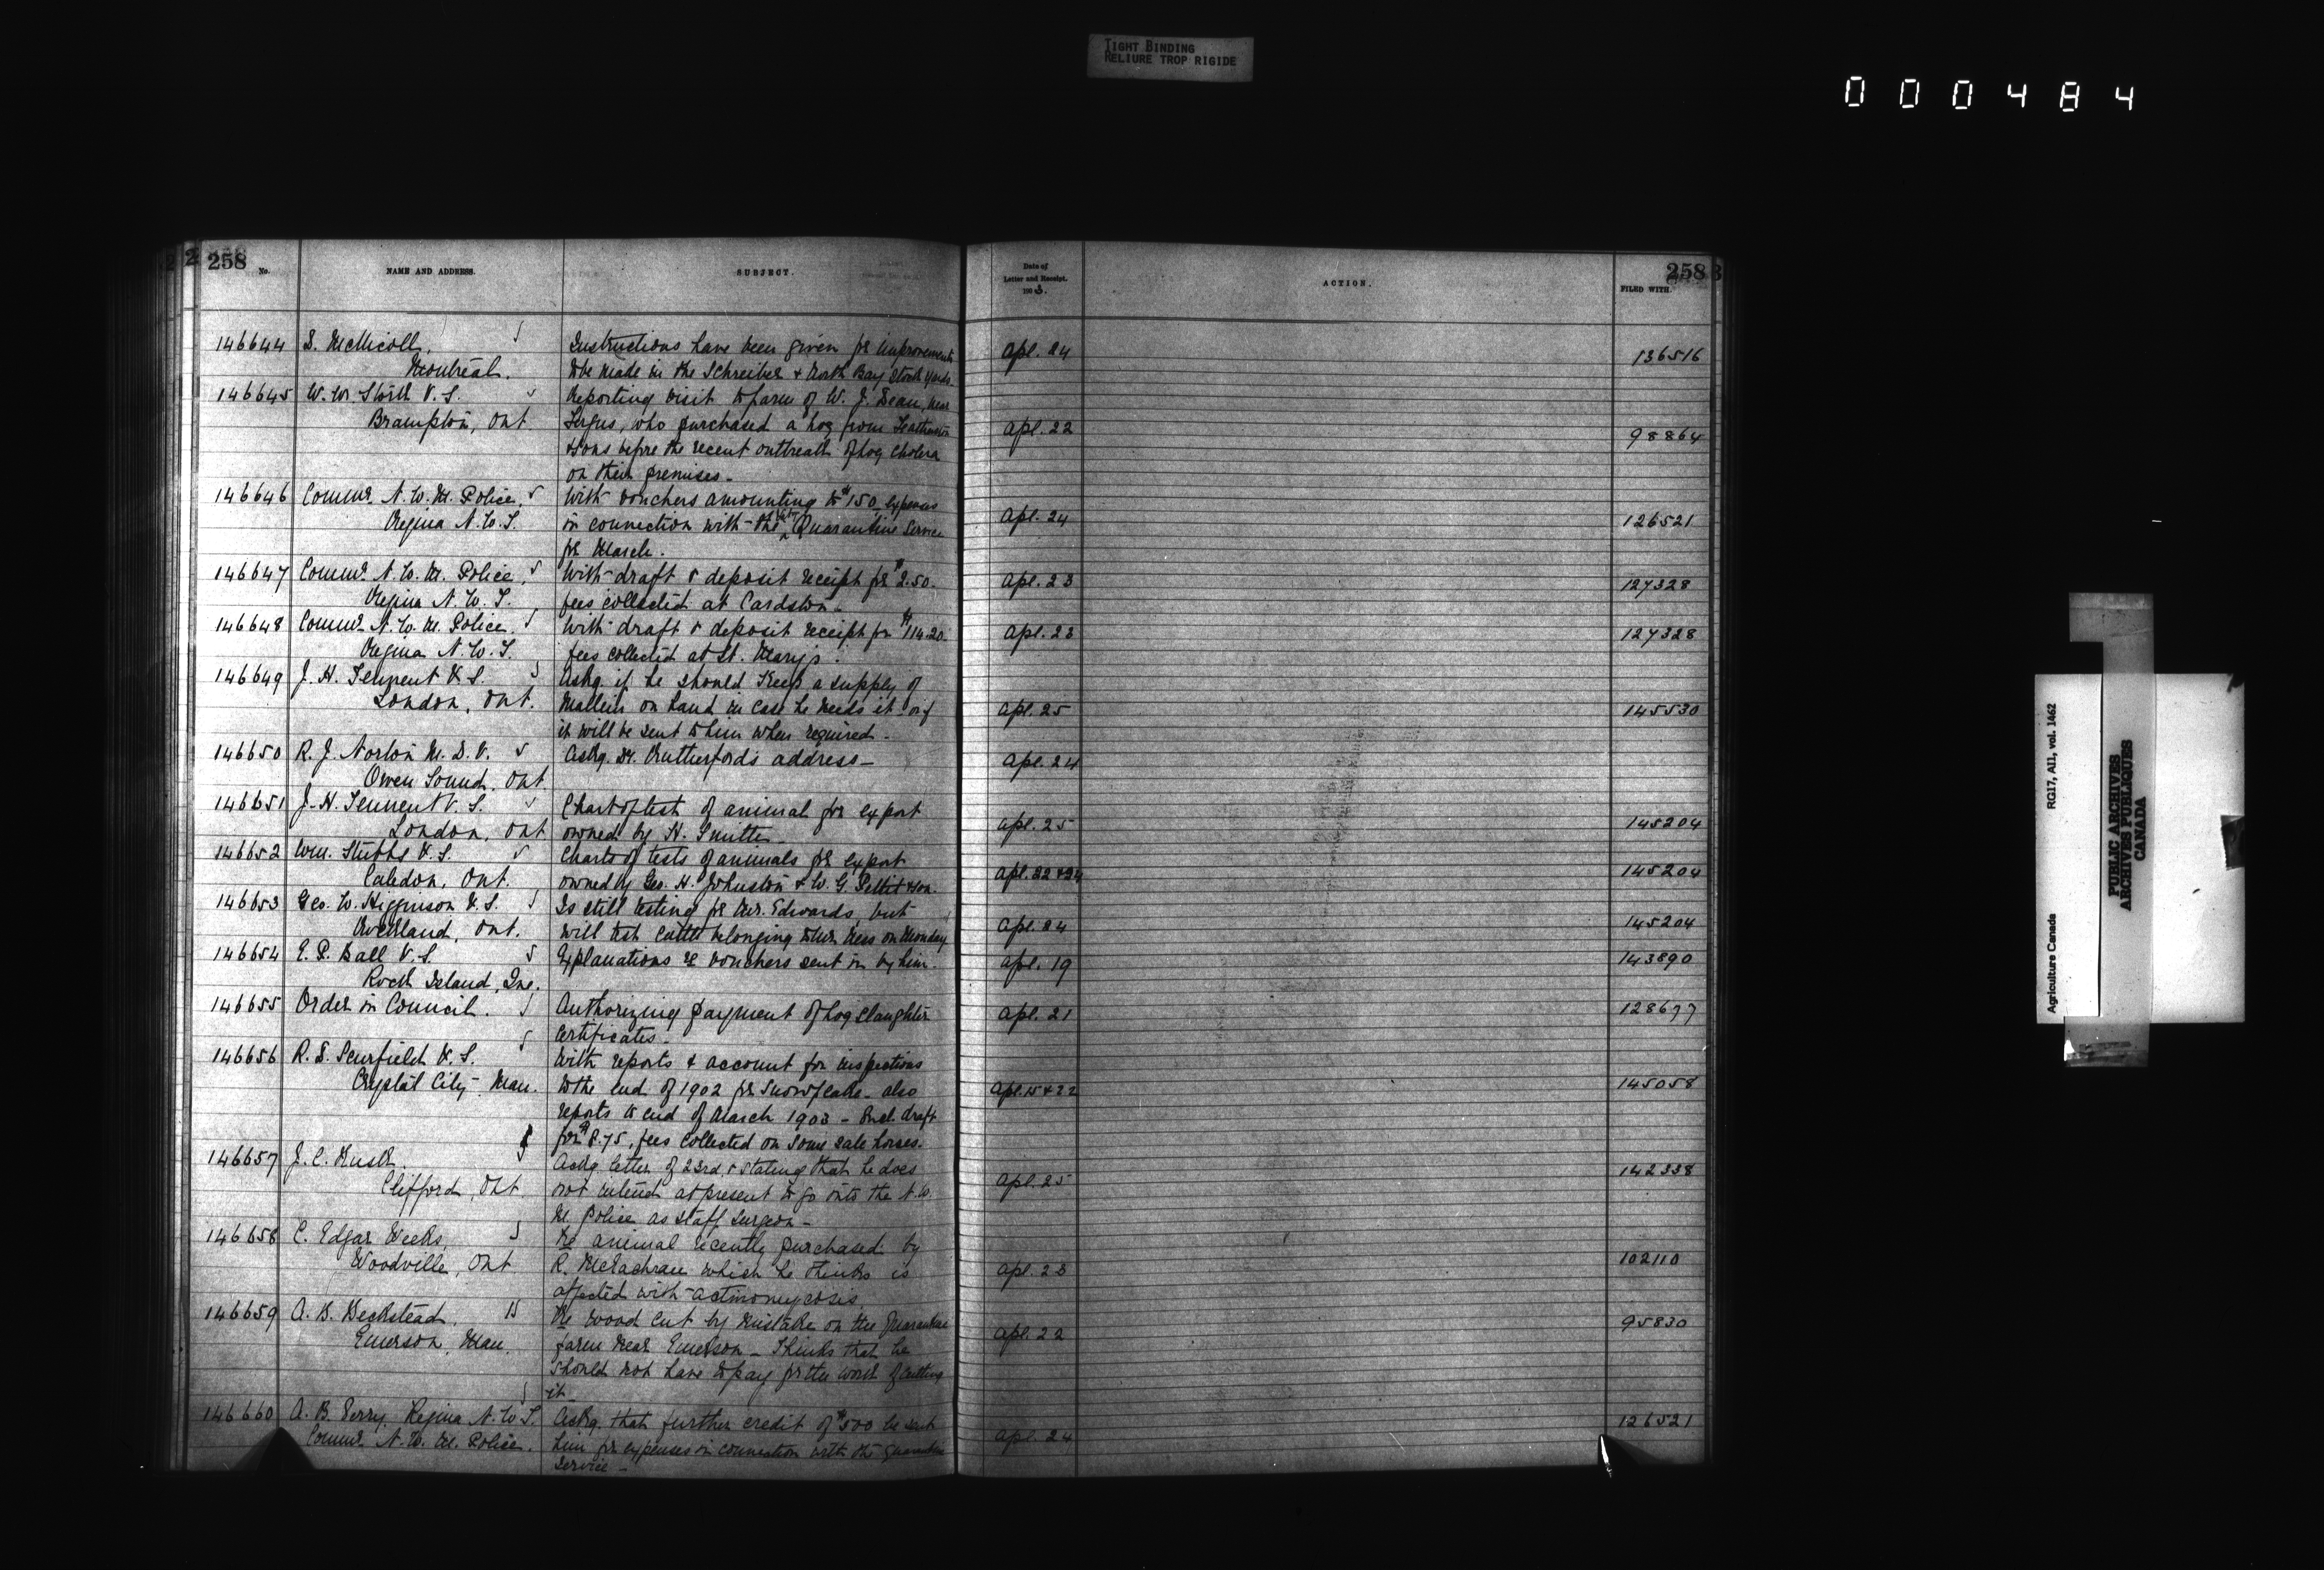 TIGHT BINDING
RELIURE TROP RIGIDE
000484
258
No.
NAME AND ADDRESS.
SUBJECT.
Date of
Letter and Receipt.
1903.
ACTION.
258
FILED WITH.
146644 D. McNicoll, Instructions have been given for improvements Apl. 24 136516
Montreal. to be made in the Schreiber & North Bay Stock Yards.
146645 W. W. V. S. Reporting visit to farm of W. J. Dean, near
Brampton, Ont Fergus, who purchased a hog from Apl. 22 98864
& Sons before the recent outbreak of hog cholera
on their premises -
146646 Commr. N. W. M. Police, With vouchers amounting to $150, expenses
Regina N. W. T. in connection with the Quarantine Service Apl. 24 126521
for March.
146647 Commr. N. W. M. Police, With draft & deposit receipt for $2.50. Apl. 23 127328
Regina N. W. T. fees collected at Cardston -
146648 Commr. N. W. M. Police, With draft & deposit receipt for $114.20. Apl. 23 127328
Regina N. W. T. fees collected at St. Mary's.
146649 J. H. Tennent V. S. Askg. if he should keep a supply of
London, Ont. Mallein on hand in case he needs it or if Apl. 25 145530
it will be sent to him when required -
146650 R. J. Norton M. D. V. Askg. Dr. Rutherford's address - Apl. 24
Owen Sound, Ont.
146651 J. H. Tennent V. S. Chart of test of animal for export
London, Ont owned by H. Smith - Apl. 25 145204
146652 Wm. Stubbs V. S. Charts of tests of animals for export
Caledon, Ont. owned by Geo. H. Johnston & W. G. Pettit & Son. Apl. 22 & 24 145204
146653 Geo. W. Higginson V. S. Is still testing for Mr. Edwards, but
Rockland, Ont. will test cattle belonging to on Monday Apl. 24 145204
146654 E. P. Ball V. S. Explanations re vouchers sent in by him. Apl. 19 143890
Rock Island, Que.
146655 Order in Council. Authorizing payment of hog slaughter Apl. 21 128677
Certificates -
146656 R. D. Scurfield V. S. With reports & account for inspections
Crystal City, Man. to the end of 1902 for Snowflake - also Apl. 15 & 22 145058
reports to end of March 1903 - Encl. draft
for $8.75, fees collected on some sale horses.
146657 J. C. Askg. letter of 23rd & stating that he does
Clifford, Ont not intend at present to go into the N. W. Apl. 25 142338
M. Police as staff surgeon -
146658 C. Edgar Weeks, Re animal recently purchased by
Woodville, Ont R. McEachran which he thinks is Apl. 23 102110
affected with actinomycosis
146659 A. B. Beckstead, Re wood cut by mistake on the Quarantine
Emerson, Man. farm near Emerson - Thinks that he Apl. 22 95830
should not have to pay for the work of cutting
it -
146660 A. B. Perry, Regina N. W. T. Askg. that further credit of $500 be sent 126521
Commr. N. W. M. Police. him for expenses in connection with the Quarantine Apl. 24
Service -
Agriculture Canada
RG17, AII, vol. 1462
PUBLIC ARCHIVES
ARCHIVES PUBLIQUES
CANADA